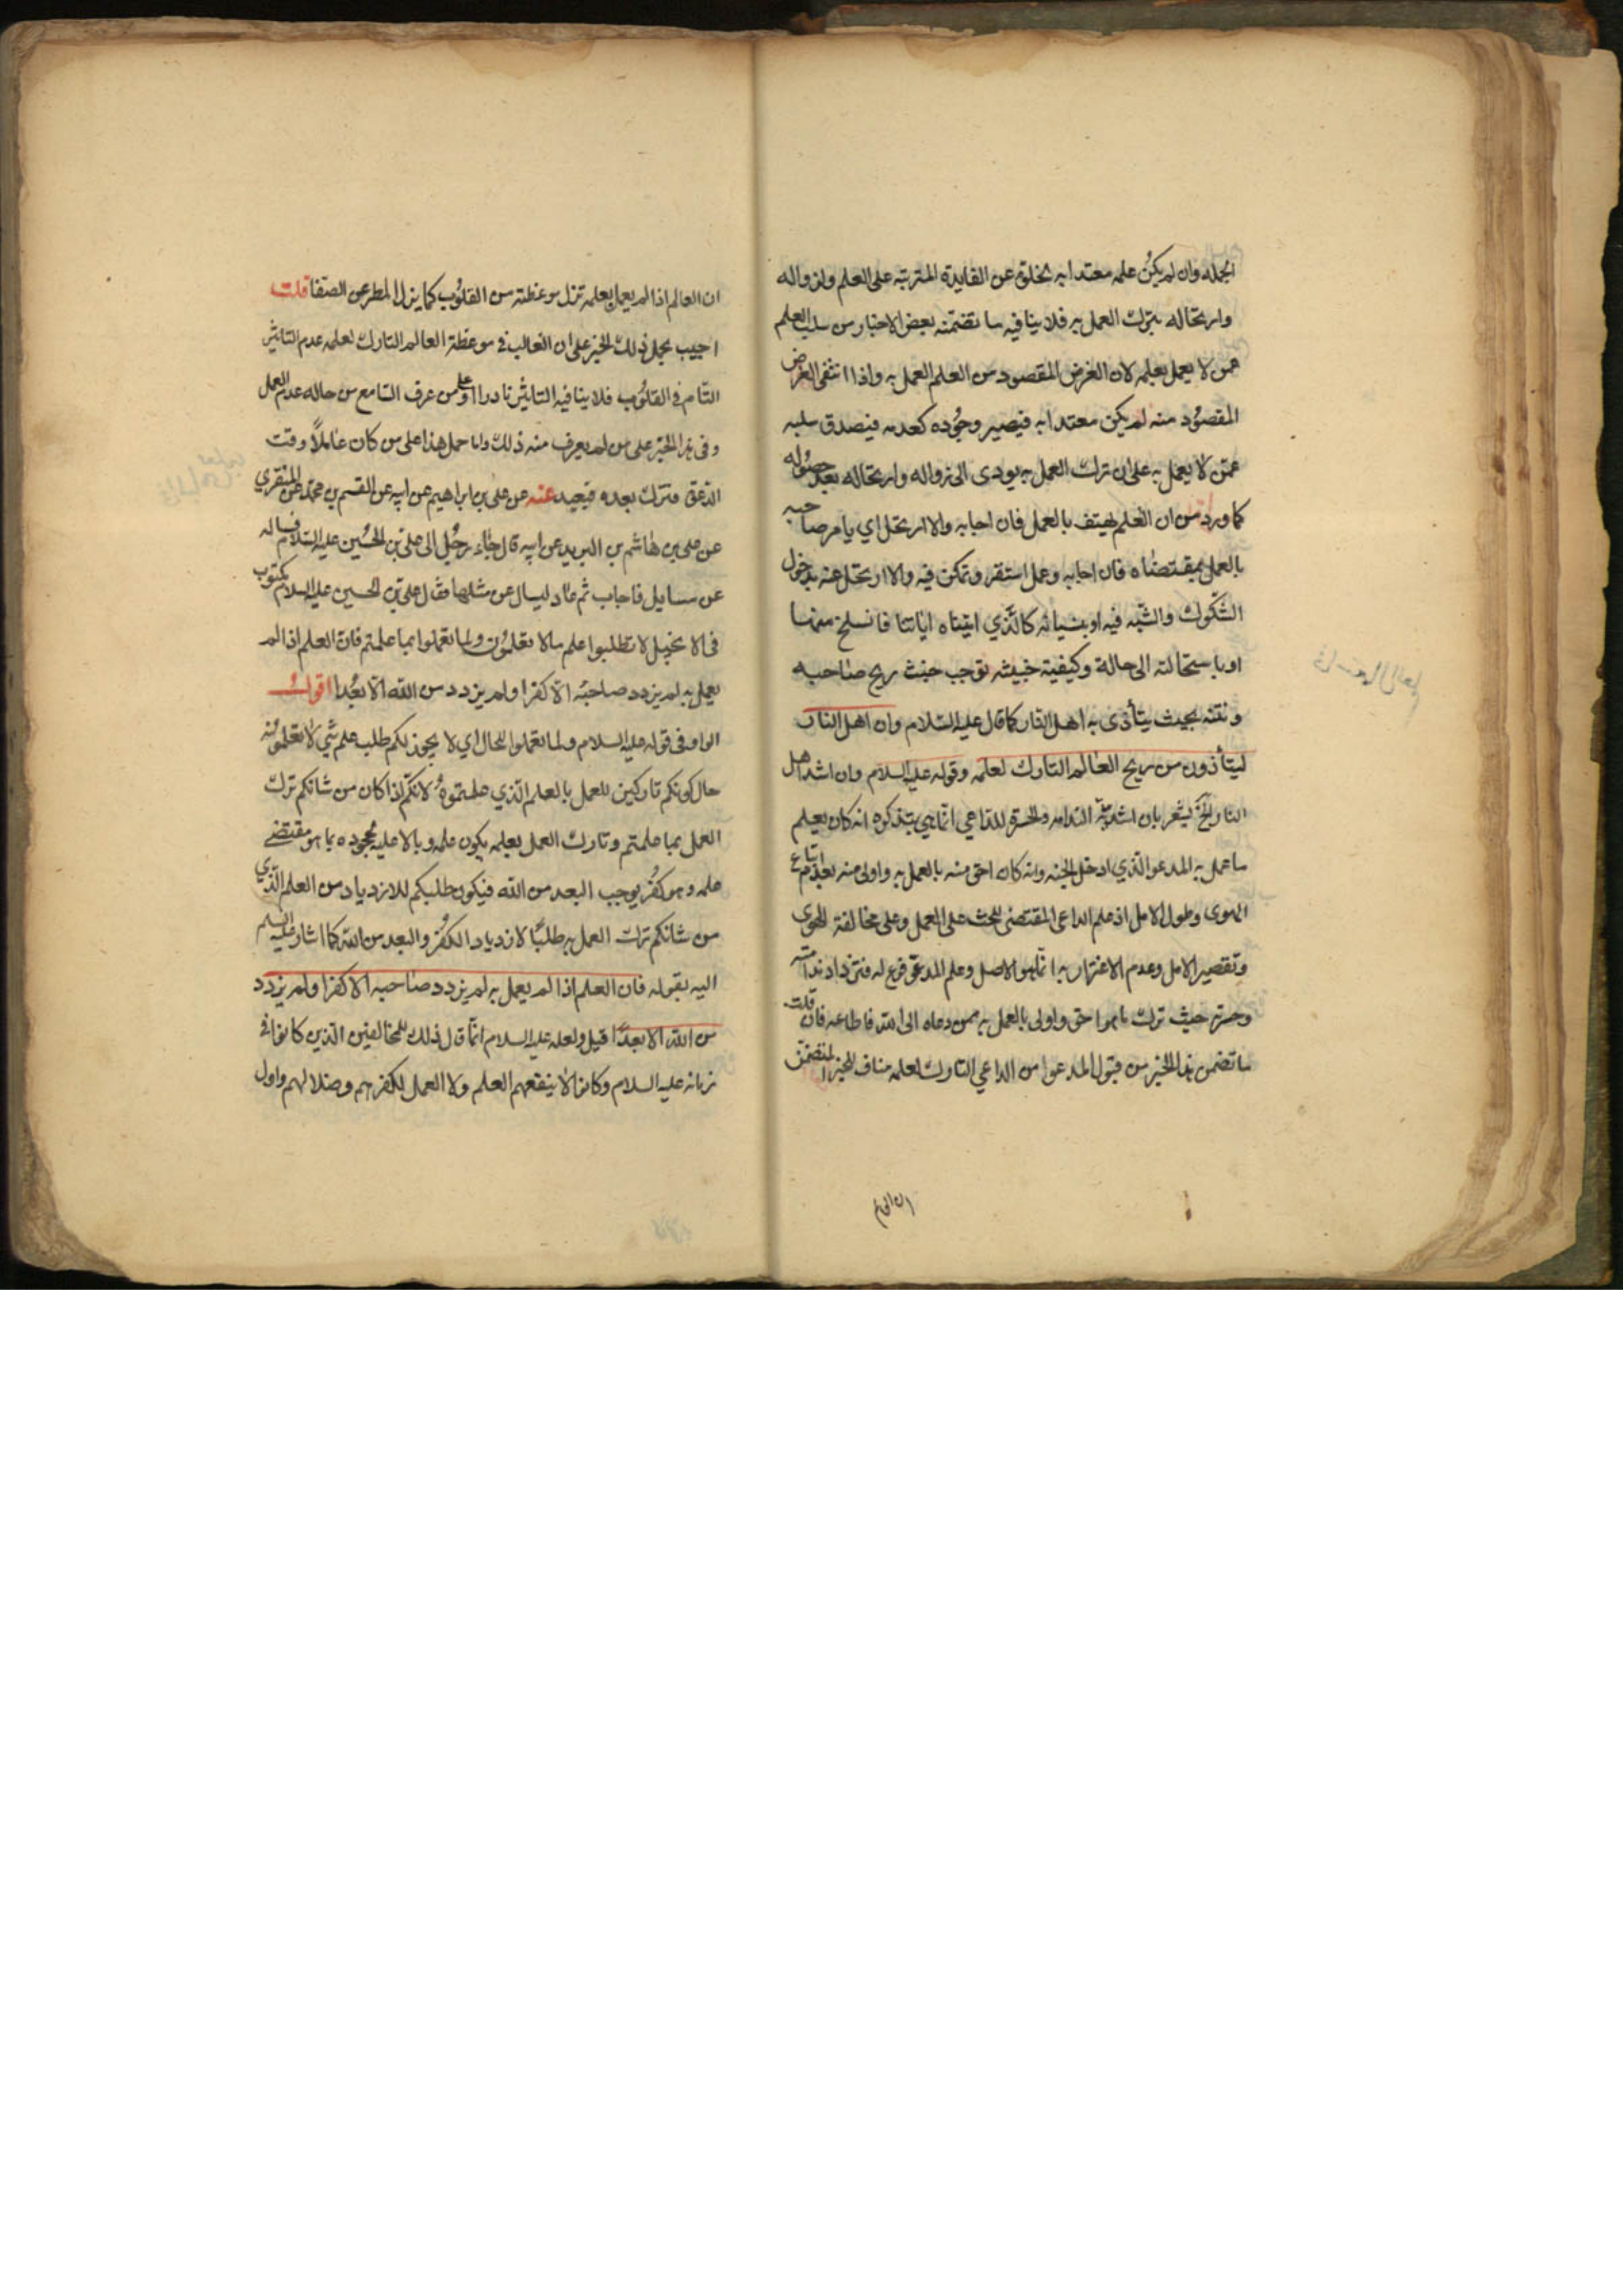 الجمله وان لم يكن علمه معتدا به لخلوّه عن الفايدة المترتبه على العلم ولزواله
وارتحاله بترك العمل به فلا ينافيه ما تضمنه بعض الاخبار من سلب العلم
عمن لا يعمل بعلمه لان الغرض المقصود من العلم العمل به واذا انتفى الغرض
المقصود منه لم يكن معتدا به فيصير وجوده كعدمه فيصدق سلبه
عمّن لا يعمل به على ان ترك العمل به يودى الى زواله وارتحاله بعد حصوله
كما ورد من ان العلم يهتف بالعمل فان اجابه والا ارتحل اي يامر صاحبه
بالعمل بمقتضاه فان اجابه وعمل استقر وتمكن فيه والا ارتحل عنه بدخول
الشكوك والشبه فيه او بنسيانه كالذي اتيناه اياتنا فانسلخ منها
او باستحالته الى حالة وكيفية خبيثه توجب خبث ريح صاحبه
ونتنه بحيث يتأذى به اهل النار كما قال عليه السلام وان اهل النار
ليتأذون من ريح العالم التارك لعلمه وقوله عليه السلام وان اشد اهل
النار الخ يشعر بان اشدية الندامه والحسرة للداعي انما هي بتذكره انه كان يعلم
ما عمل به المدعو الذي ادخل الجنه وانه كان احق منه بالعمل به واولى منه بعدم اتباع
الهوى وطول الامل اذ علم الداعى المقتضى للحث على العمل وعلى مخالفة الهوى
وتقصير الامل وعدم الاغترار به انما هو الاصل وعلم المدعو فرع له فتزداد ندامته
وحسرته حيث ترك ما هو احق واولى بالعمل به ممن دعاه الى الله فاطاعه فان قلت
ما تضمن هذا الخبر من قبول المدعو من الداعي التارك لعلمه مناف للخبر المتضمن
ان العالم
ان العالم اذا لم يعمل بعلمه تزل موعظته من القلوب كما يزل المطر عن الصفا قلت
اجيب بحمل ذلك الخبر على ان الغالب في موعظة العالم التارك لعلمه عدم التاثير
التام في القلوب فلا ينافيه التاثير نادرا او على من عرف السامع من حاله عدم العمل
وفى هذا الخبر على من لم يعرف منه ذلك واما حمل هذا على من كان عاملا وقت
الدعوة وترك بعده فبعيد عنه عن على بن ابراهيم عن ابيه عن القسم بن محمد عن المنقري
عن على بن هاشم بن البريد عن ابيه قال جاء رجل الى على بن الحسين عليه السلام فساله
عن مسايل فاجاب ثم عاد ليسال عن مثلها فقال على بن الحسين عليه السلام مكتوب
فى الانجيل لا تطلبوا علم ما لا تعلمون ولما تعملوا بما علمتم فان العلم اذا لم
يعمل به لم يزدد صاحبه الا كفرا ولم يزدد من الله الا بعدا اقول
الواو فى قوله عليه السلام ولما تعملوا للحال اي لا يجوز لكم طلب علم شي لا تعلمونه
حال كونكم تاركين للعمل بالعلم الذي علمتموه لانكم اذا كان من شانكم ترك
العمل بما علمتم وتارك العمل بعلمه يكون علمه وبالا عليه لجحوده بما هو مقتضى
علمه وهو كفر يوجب البعد من الله فيكون طلبكم للازدياد من العلم الذي
من شانكم ترك العمل به طلبا لازدياد الكفر والبعد من الله كما اشار عليه السلم
اليه بقوله فان العلم اذا لم يعمل به لم يزدد صاحبه الا كفرا ولم يزدد
من الله الا بعدا قيل ولعله عليه السلام انما قال ذلك للمخالفين الذين كانوا في
زمانه عليه السلام وكانوا لا ينفعهم العلم ولا العمل لكفرهم وضلالهم واول